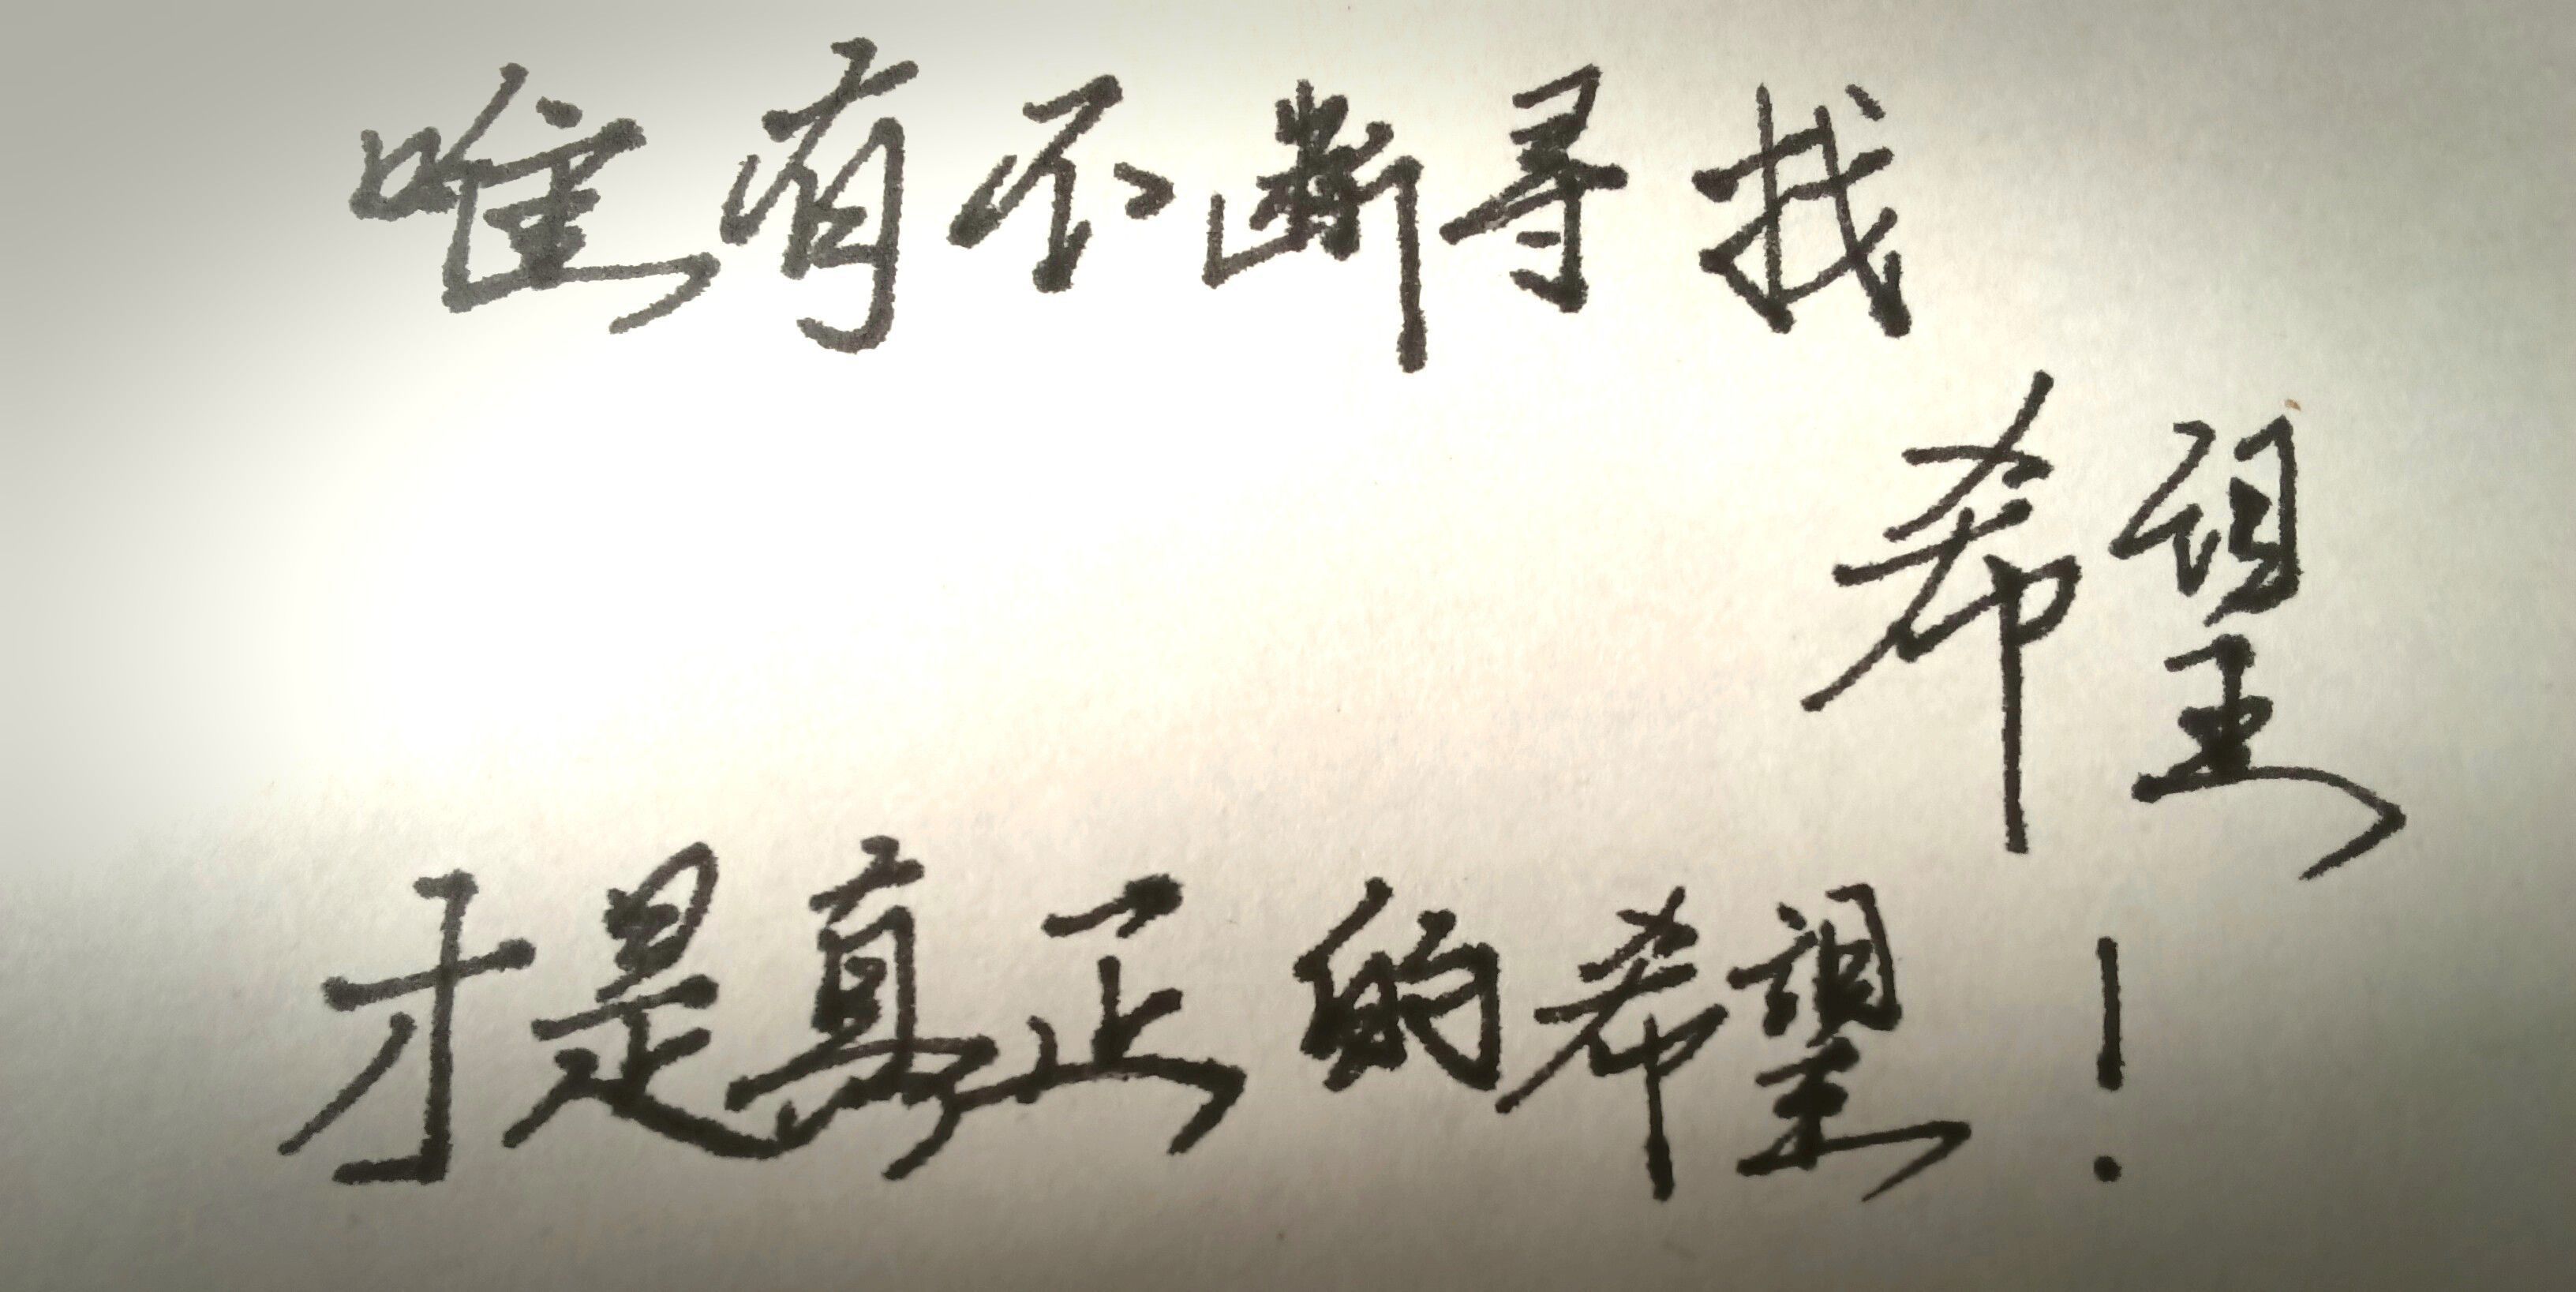 唯有不斷寻找
希望
才是真正的希望！